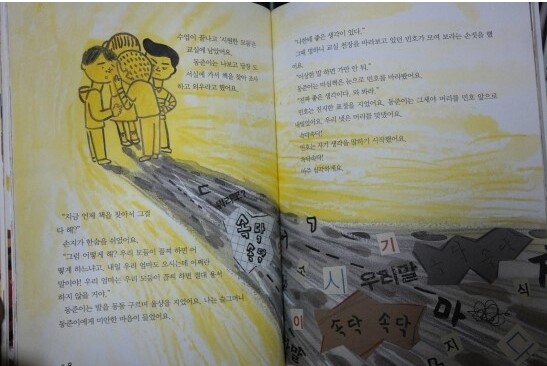 수업이 끝나고 '지원한 모둠은
교실에 남았어요.
동준이는 나보고 당장 도
서실에 가서 책을 찾아 조사
하고 외우라고 했어요.
"지금 언제 책을 찾아서 그걸
다 해?"
손지가 한숨을 쉬었어요.
"그럼 어떻게 해? 우리 모둠이 꼴찌 하면 어
떻게 하느냐고. 내일 우리 엄마도 오시는데 어쩌란
말이야! 우리 엄마는 우리 모둠이 꼴찌 하면 절대 용서
하지 않을 거야."
동준이는 발을 동동 구르며 울상을 지었어요. 나는 슬그머니
동준이에게 미안한 마음이 들었어요.
"나한테 좋은 생각이 있다."
그때 멍하니 교실 천장을 바라보고 있던 민호가 모여 보라는 손짓을 했
어요.
"이상한 말 하면 가만 안 둬."
동준이는 미심쩍은 눈으로 민호를 바라봤어요.
"진짜 좋은 생각이다. 와 봐라."
민호는 진지한 표정을 지었어요. 동준이는 그제야 머리를 민호 앞으로
내밀었어요. 우리 넷은 머리를 맞댔어요.
속닥속닥!
민호는 자기 생각을 말하기 시작했어요.
속닥속닥!
아주 심각하게요.
ㄷ
속닥
속닥
ㄱ
기
소
시
우리말
식
이
속닥 속닥
마
지
다
말